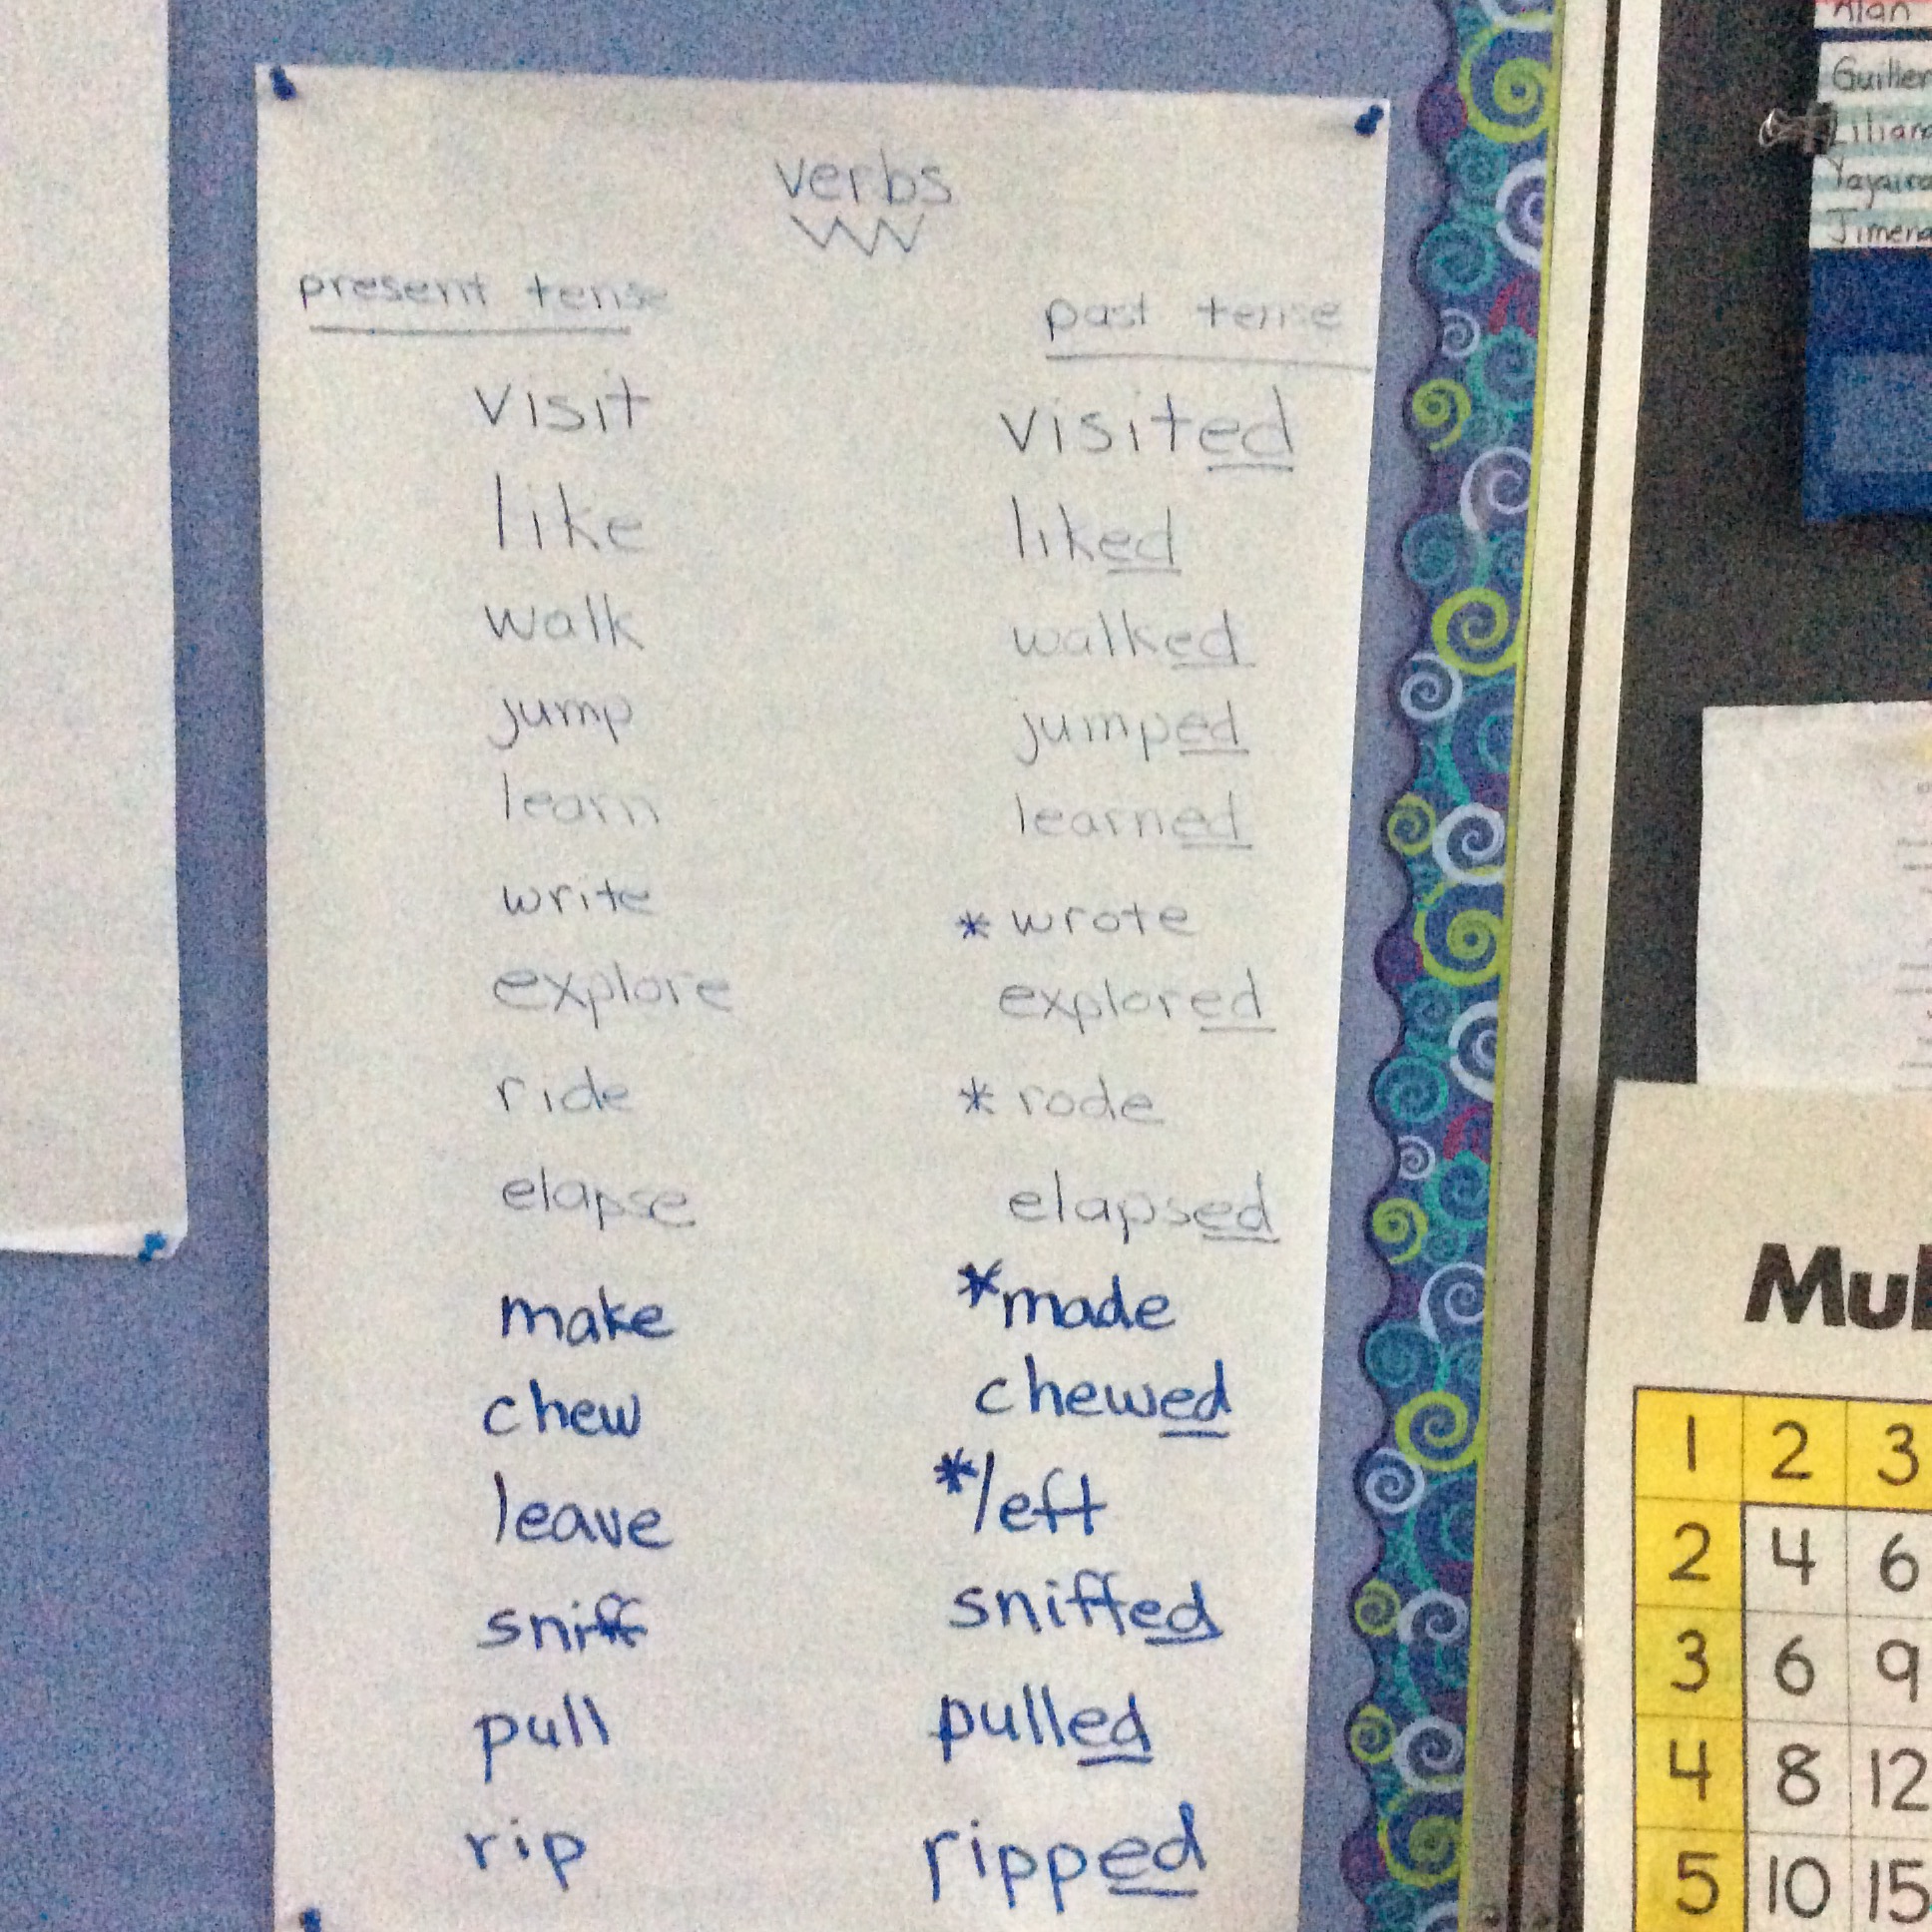 verbs
present tense past tense
visit visited
like liked
walk walked
jump jumped
learn learned
write * wrote
explore explored
ride * rode
elapse elapsed
make * made
chew chewed
leave * left
sniff sniffed
pull pulled
rip ripped
Jimena
1 2 3
2 4 6
3 6 9
4 8 12
5 10 15